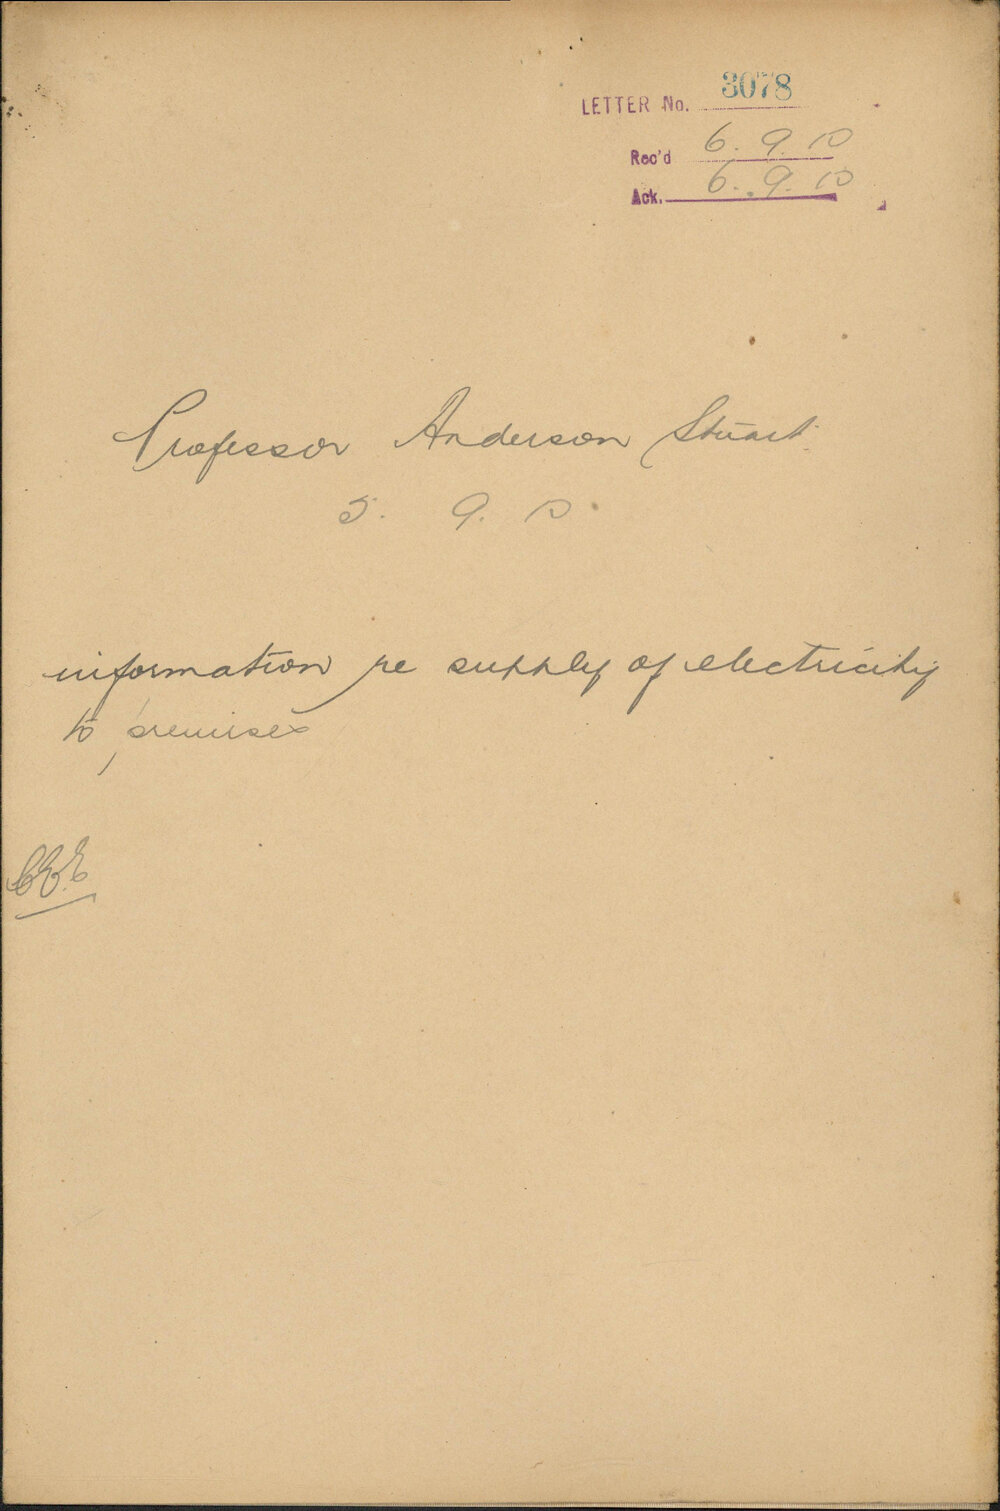 LETTER No. 3078
Rec'd 6. 9. 10
Ack. 6. 9. 10
Professor Anderson Stuart
5. 9. 10.
information re supply of electricity
to premises